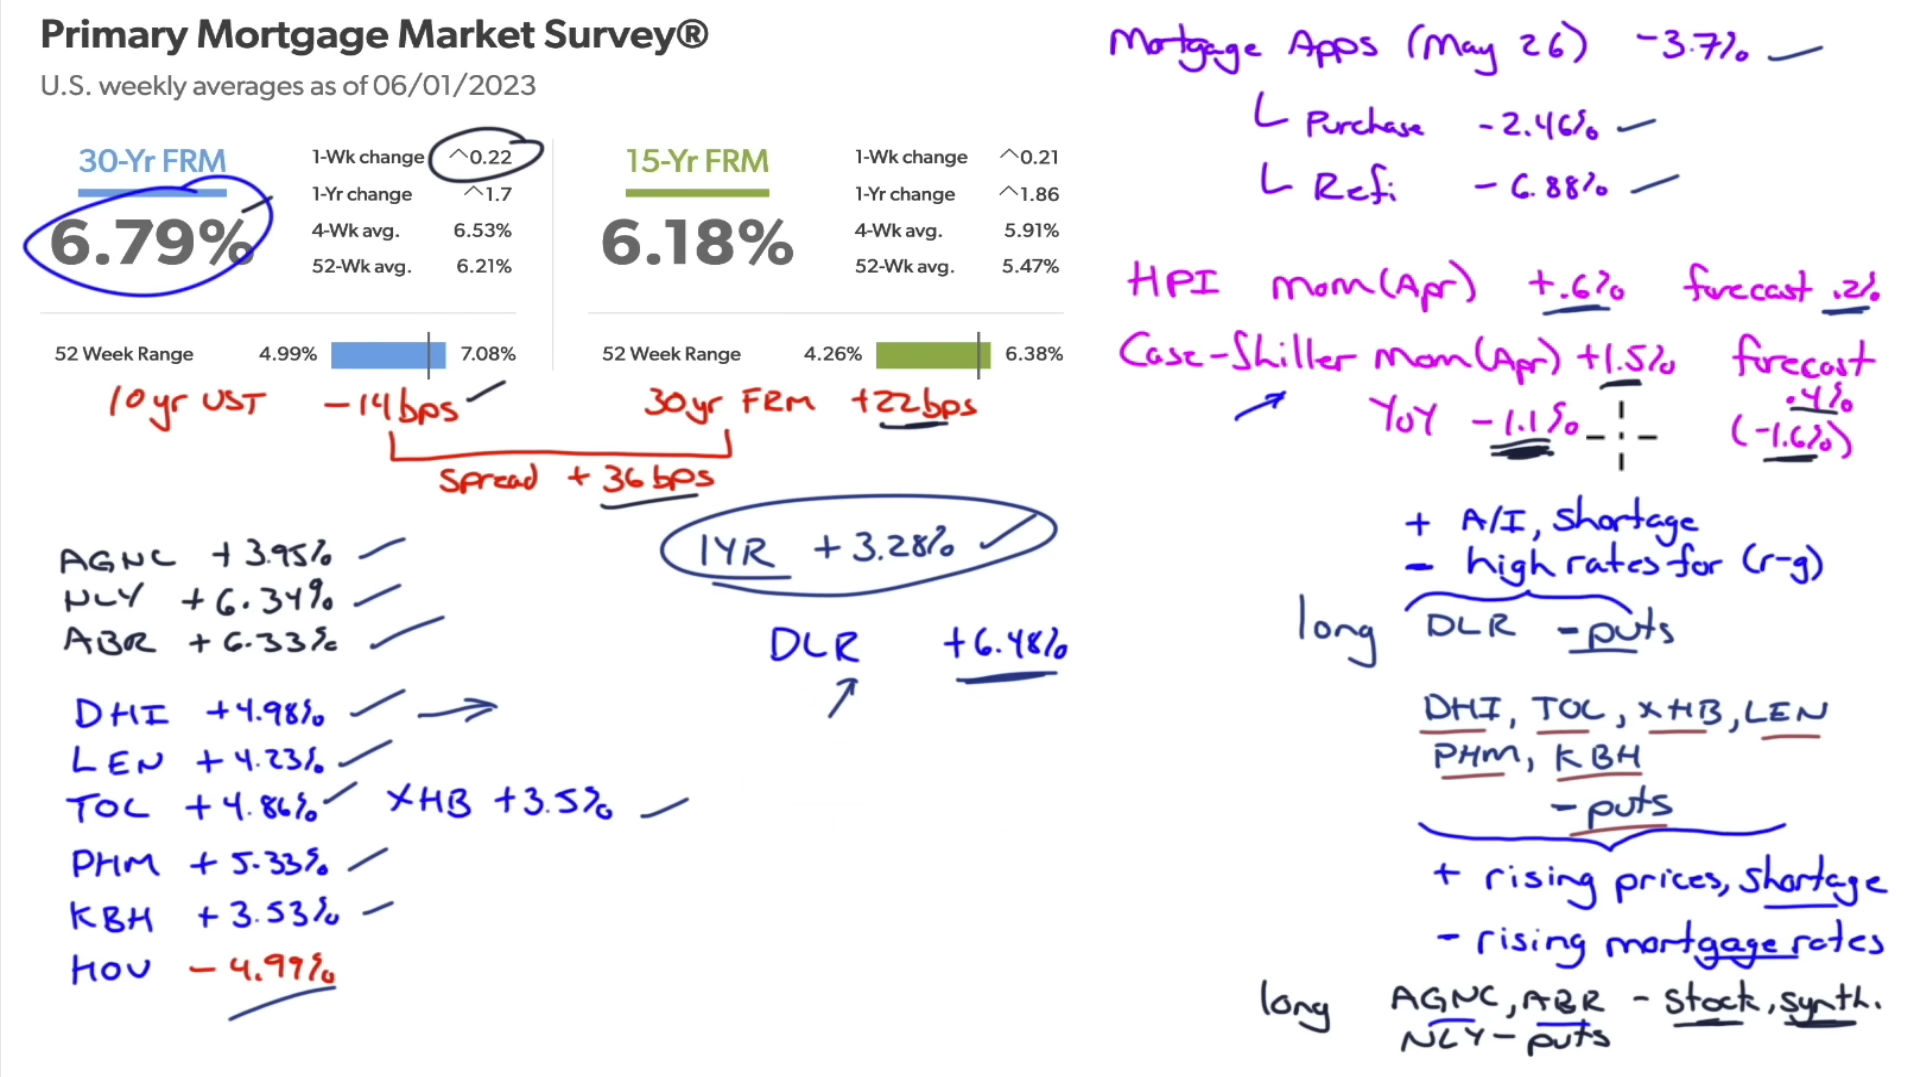 Primary Mortgage Market Survey®
U.S. weekly averages as of 06/01/2023
30-Yr FRM
6.79%
1-Wk change ^0.22
1-Yr change ^1.7
4-Wk avg. 6.53%
52-Wk avg. 6.21%
52 Week Range 4.99% 7.08%
15-Yr FRM
6.18%
1-Wk change ^0.21
1-Yr change ^1.86
4-Wk avg. 5.91%
52-Wk avg. 5.47%
52 Week Range 4.26% 6.38%
10yr UST -14bps 30yr FRM +22bps
Spread + 36bps
AGNC +3.95%
NLY +6.34%
ABR +6.33%
IYR +3.28%
DLR +6.48%
DHI +4.98%
LEN +4.23%
TOL +4.86% XHB +3.5%
PHM +5.33%
KBH +3.53%
HOV -4.99%
Mortgage Apps (May 26) -3.7%
Purchase -2.46%
Refi -6.88%
HPI mom(Apr) +.6% forecast .2%
Case-Shiller mom(Apr) +1.5% forecast .4%
YoY -1.1% (-1.6%)
+ A/I, shortage
- high rates for (r-g)
long DLR - puts
DHI, TOL, XHB, LEN
PHM, KBH
- puts
+ rising prices, shortage
- rising mortgage rates
long AGNC, ABR - stock, synth.
NLY - puts